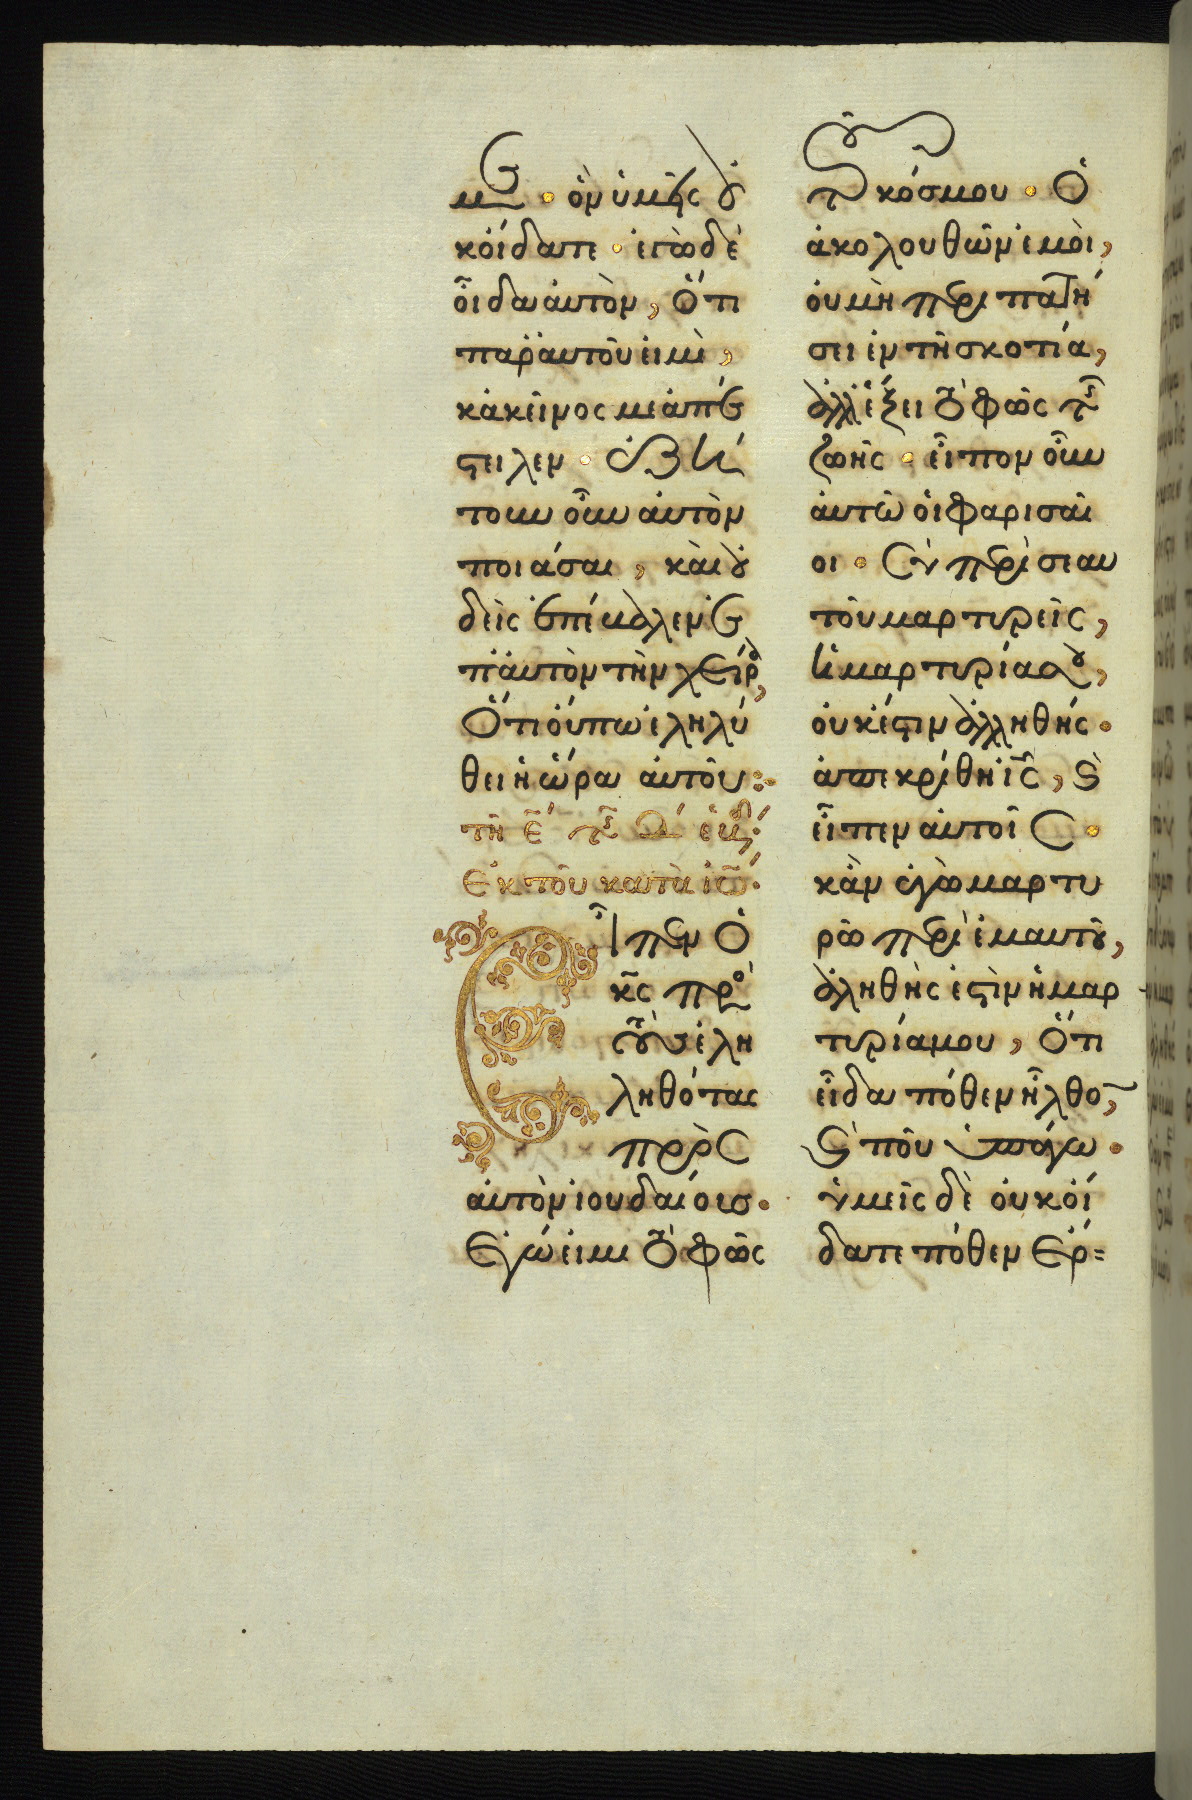 με· ὃν ὑμεῖς οὐ
κ οἴδατε· ἐγὼ δὲ
οἶδα αὐτὸν, Ὅτι
παρ' αὐτοῦ εἰμὶ,
κἀκεῖνός με ἀπέ
στειλεν· ἐζή
τουν οὖν αὐτὸν
πιάσαι, καὶ οὐ
δεὶς ἐπέβαλεν ἐ
π' αὐτὸν τὴν χεῖρα,
Ὅτι οὔπω ἐληλύ
θει ἡ ὥρα αὐτοῦ:
τῇ ε τῆς Δ ἑβδ:
Ἐκ τοῦ κατὰ ἰω:
Εἶπεν Ὁ
κς πρὸ
τοὺς ἐλη
ληθότας
πρὸς
αὐτὸν ἰουδαίους·
Ἐγώ εἰμι τὸ φῶς
τοῦ κόσμου· Ὁ
ἀκολουθῶν ἐμοὶ,
οὐ μὴ περιπατή
σει ἐν τῇ σκοτίᾳ,
ἀλλ' ἕξει τὸ φῶς τῆς
ζωῆς· εἶπον οὖν
αὐτῷ οἱ φαρισαῖ
οι· Σὺ περὶ σεαυ
τοῦ μαρτυρεῖς,
ἡ μαρτυρία σου,
οὐκ ἔστιν ἀληθής·
ἀπεκρίθη ἰς, καὶ
εἶπεν αὐτοῖς·
κἂν ἐγὼ μαρτυ
ρῶ περὶ ἐμαυτοῦ,
ἀληθής ἐστιν ἡ μαρ
τυρία μου, Ὅτι
οἶδα πόθεν ἦλθον,
καὶ ποῦ ὑπάγω·
ὑμεῖς δὲ οὐκ οἴ
δατε πόθεν Ἔρ=